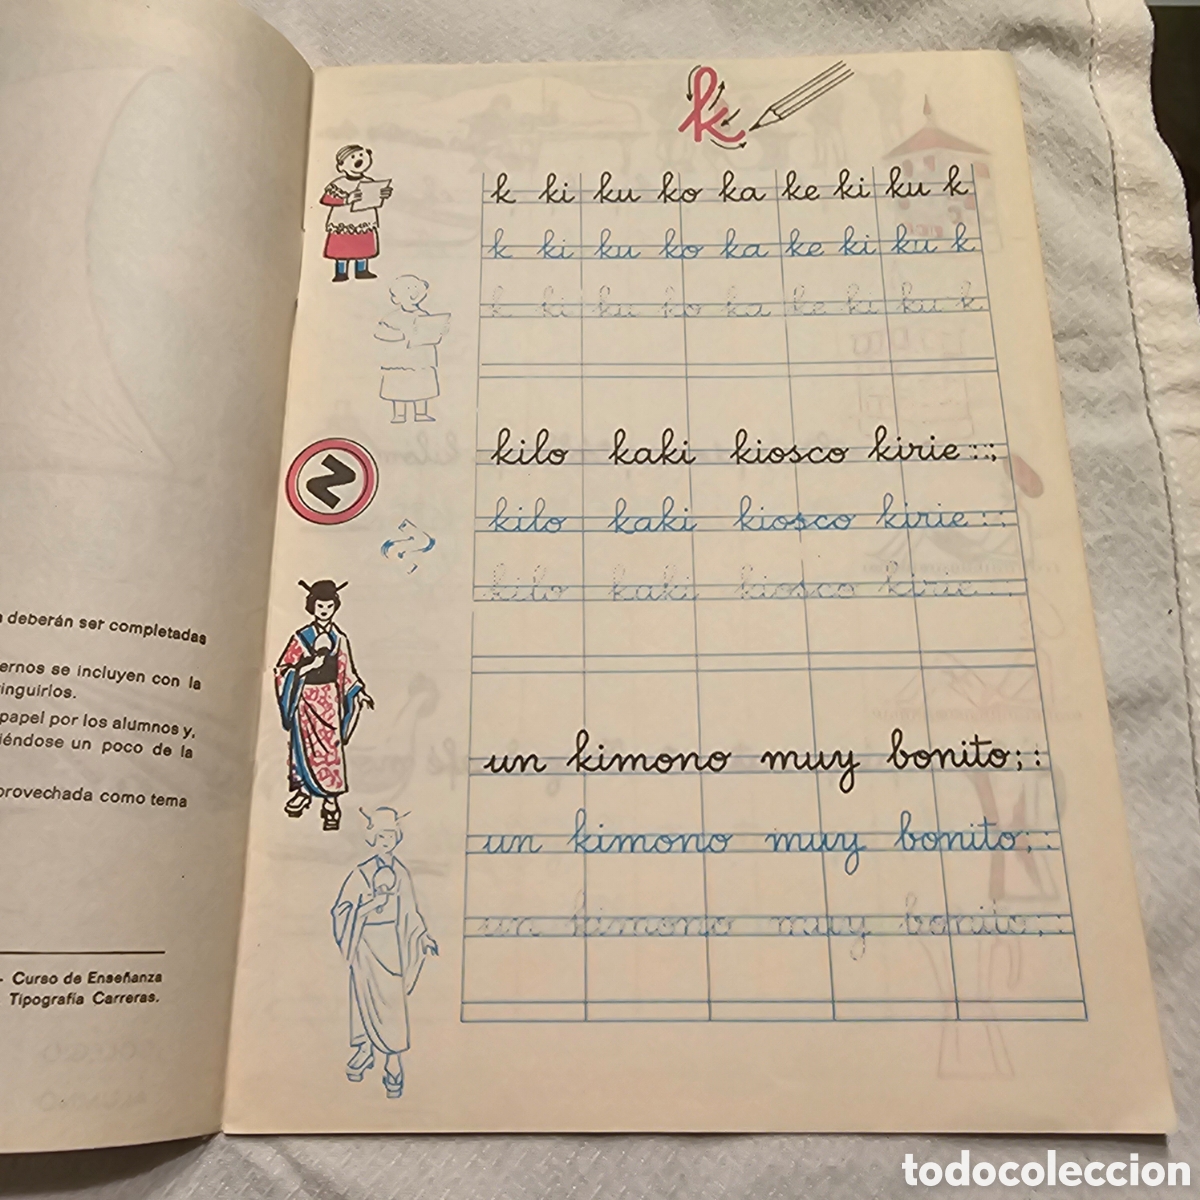 k
k ki ku ko ka ke ki ku k
k ki ku ko ka ke ki ku k
k ki ku ko ka ke ki ku k
kilo kaki kiosco kirie : : ;
kilo kaki kiosco kirie : :
kilo kaki kiosco kirie : :
un kimono muy bonito; :
un kimono muy bonito; :
un kimono muy bonito; :
deberán ser completadas
se incluyen con la
papel por los alumnos y,
un poco de la
como tema
- Curso de Enseñanza
Tipografía Carreras.
todocoleccion